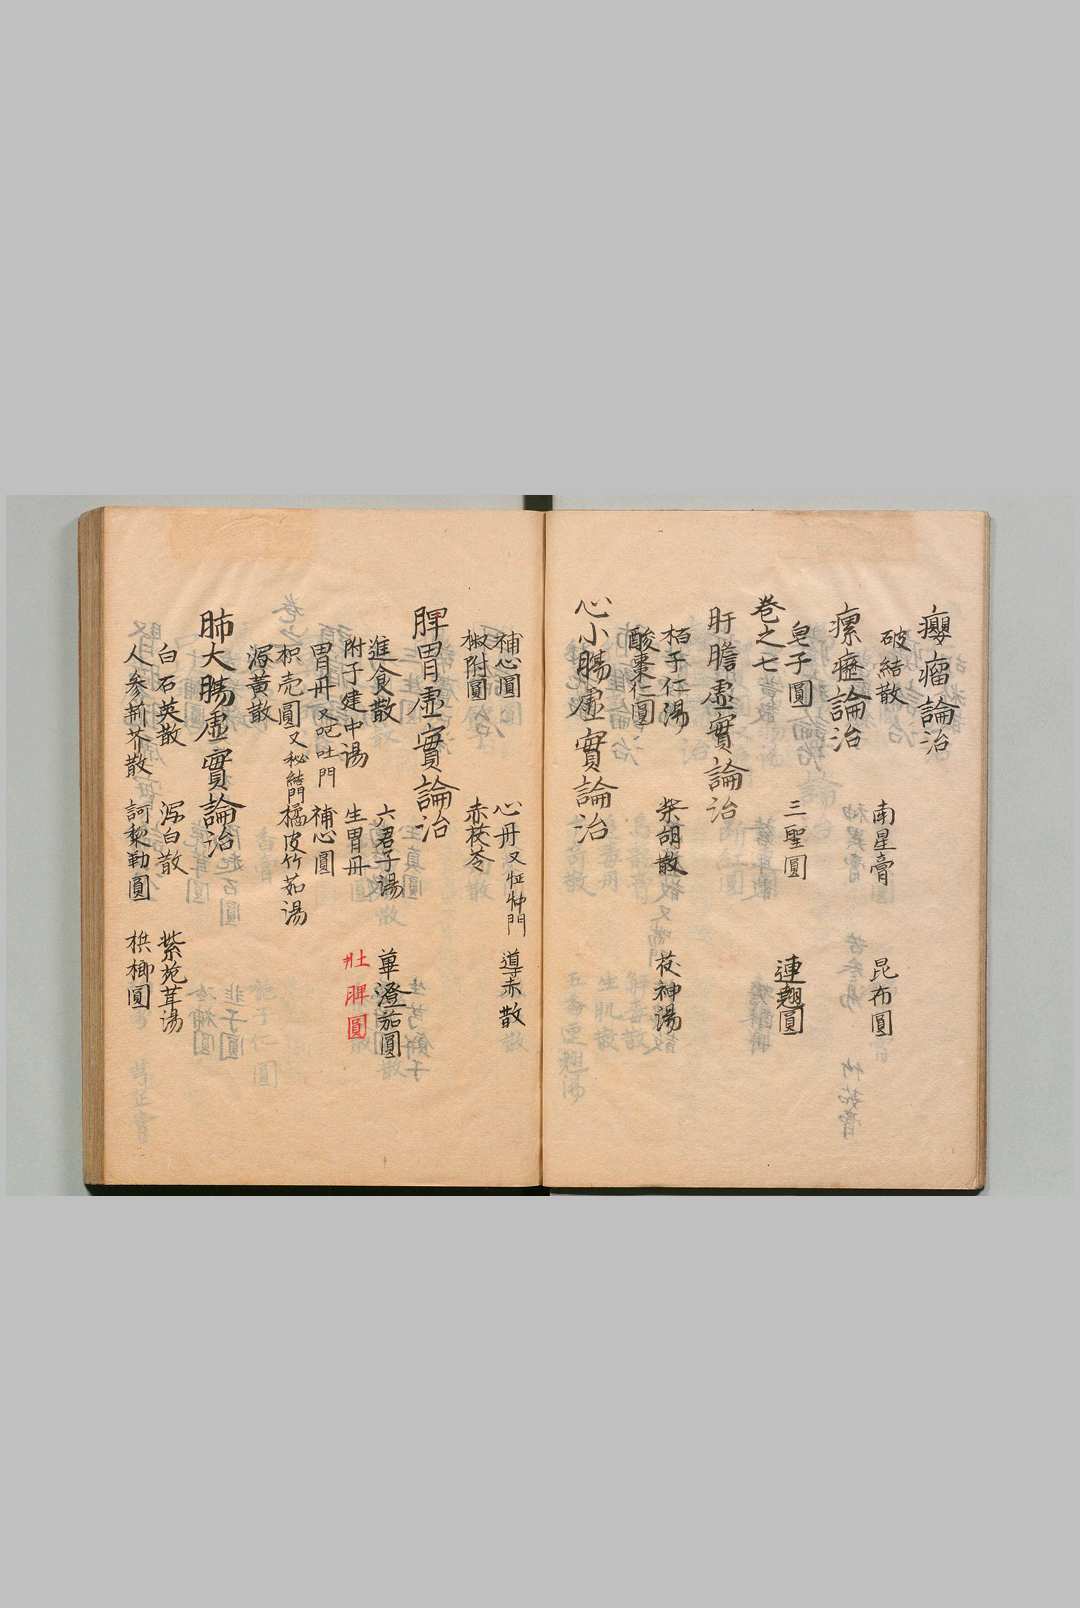 癭瘤論治
破結散 南星膏 昆布圓
瘰癧論治
皂子圓 三聖圓 連翹圓
卷之七
肝膽虛實論治
栢子仁湯 柴胡散 茯神湯
酸棗仁圓
心小腸虛實論治
補心圓 心丹又怔忡門 導赤散
椒附圓 赤茯苓散
脾胃虛實論治
進食散 六君子湯 蓽澄茄圓
附子建中湯 生胃丹 壮脾圓
胃丹又呕吐門 補心圓
枳壳圓又秘結門 橘皮竹茹湯
瀉黃散
肺大腸虛實論治
白石英散 瀉白散 紫菀茸湯
人參荊芥散 訶黎勒圓 梹榔圓